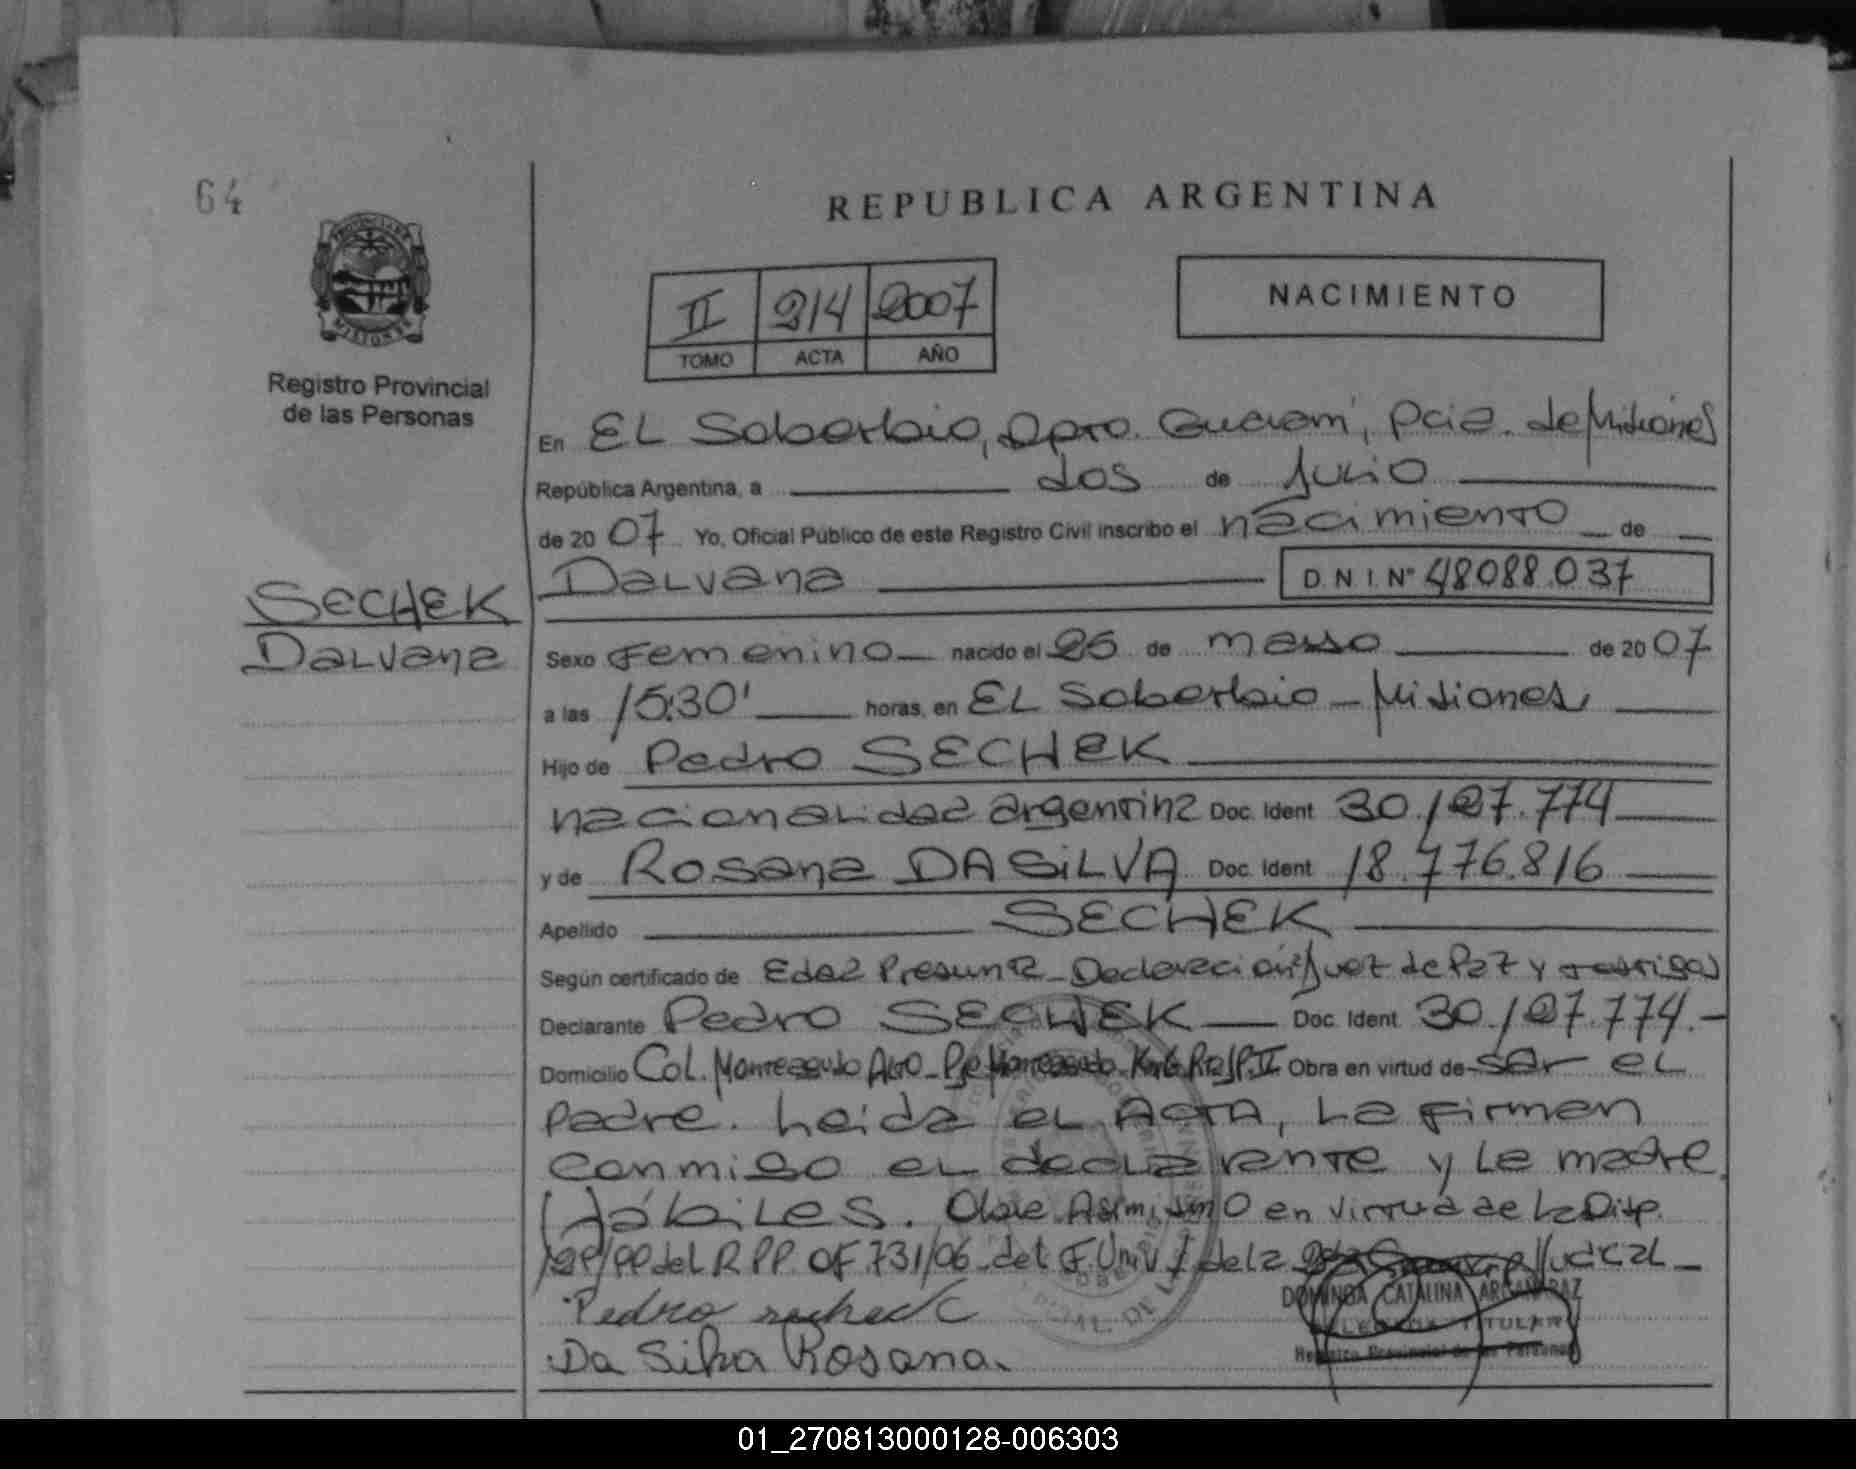 64
REPUBLICA ARGENTINA
PROVINCIA DE
MISIONES
Registro Provincial
de las Personas
II 214 2007
TOMO ACTA AÑO
NACIMIENTO
En EL Soberbio, Dpto. Guarani, Pcia. de Misiones
República Argentina, a dos de Julio
de 20 07 Yo, Oficial Público de este Registro Civil inscribo el nacimiento de
Dalvana D.N.I.Nº 48088.037
SECHEK
Dalvana
Sexo Femenino nacido el 25 de marzo de 20 07
a las 15:30' horas, en EL Soberbio - Misiones
Hijo de Pedro SECHEK
nacionalidad argentina Doc. Ident 30.127.774
y de Rosana DA SILVA Doc. Ident 18.776.816
Apellido SECHEK
Según certificado de Edad Presunta - Declaración Juez de Paz y testigos
Declarante Pedro SECHEK Doc. Ident. 30.127.774.-
Domicilio Col. Monteagudo Alto - Pje Monteagudo - Km 6 Obra en virtud de ser el
Padre. Leida el ACTA, La firman
conmigo el declarante y la madre
Hábiles. Obra Asimismo en virtud de la Disp.
del RPP. OF 731/06 - del de la Judicial -
Pedro sechek
Da Silva Rosana.
DOMINGA CATALINA
DELEGADA TITULAR
Registro Provincial de las Personas
01_270813000128-006303